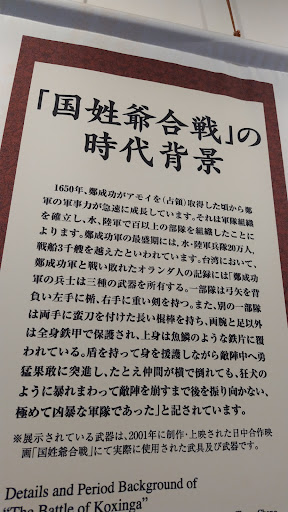 「国姓爺合戦」の
時代背景
1650年、鄭成功がアモイを(占領)取得した頃から鄭
軍の軍事力が急速に成長しています。それは軍隊組織
を確立し、水、陸軍で百以上の部隊を組織したことに
よります。鄭成功軍の最盛期には、水・陸軍兵隊20万人、
戦船3千艘を越えたといわれています。台湾において、
鄭成功軍と戦い敗れたオランダ人の記録には「鄭成功
軍の兵士は三種の武器を所有する。一部隊は弓矢を背
負い左手に楯、右手に重い剣を持つ。また、別の一部隊
は両手に蛮刀を付けた長い棍棒を持ち、両腕と足以外
は全身鉄甲で保護され、上身は魚鱗のような鉄片に覆
われている。盾を持って身を援護しながら敵陣中へ勇
猛果敢に突進し、たとえ仲間が横で倒れても、狂犬の
ように暴れまわって敵陣を崩すまで後を振り向かない、
極めて凶暴な軍隊であった」と記されています。
※展示されている武器は、2001年に創作・上映された日中合作映
画「国姓爺合戦」にて実際に使用された武具及び武器です。
Details and Period Background of
"The Battle of Koxinga"